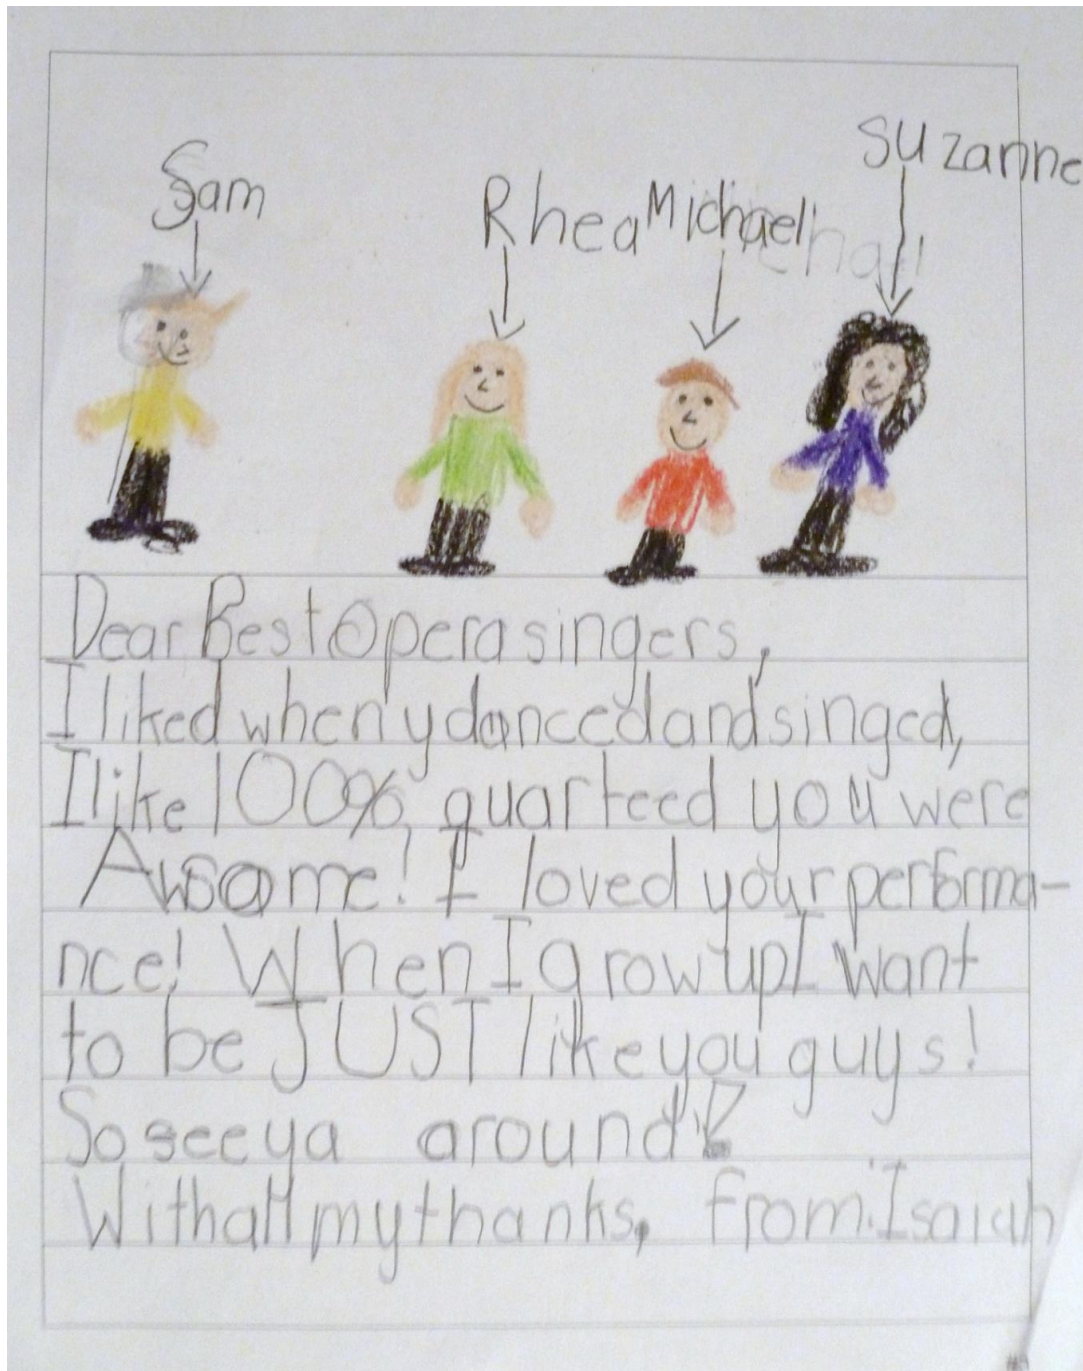 Sam
Rhea Michael
Suzanne
Dear Best Opera singers,
I liked when y danced and singed,
I like 100% quarteed you were
Awsome! I loved your performa-
nce! When I grow up I want
to be JUST like you guys!
So see ya around!
With all my thanks, from: Isaiah